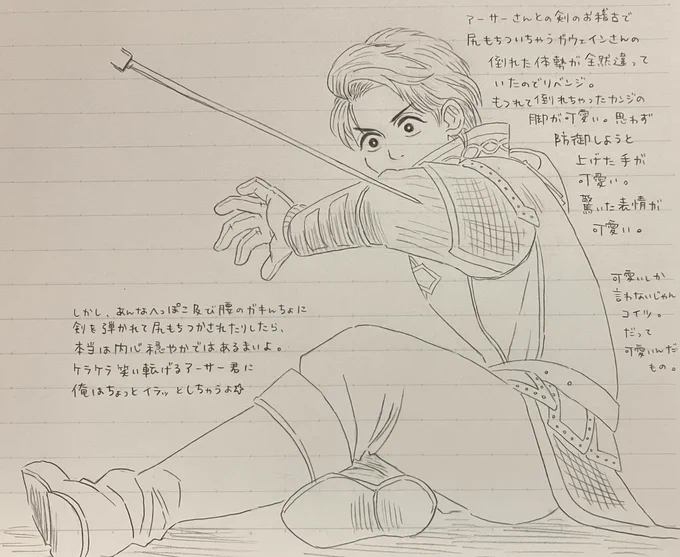 アーサーさんとの剣のお稽古で
尻もちついちゃうガウェインさんの
倒れた体勢が全然違って
いたのでリベンジ。
もつれて倒れちゃったカンジの
脚が可愛い。思わず
防御しようと
上げた手が
可愛い。
驚いた表情が
可愛い。
可愛いしか
言わないじゃん
コイツ。
だって
可愛いんだ
もの。
しかし、あんなへっぽこ及び腰のガキんちょに
剣を弾かれて尻もちつかされたりしたら、
本当は内心穏やかではあるまいよ。
ケラケラ笑い転げるアーサー君に
俺はちょっとイラッとしちゃうよ☆